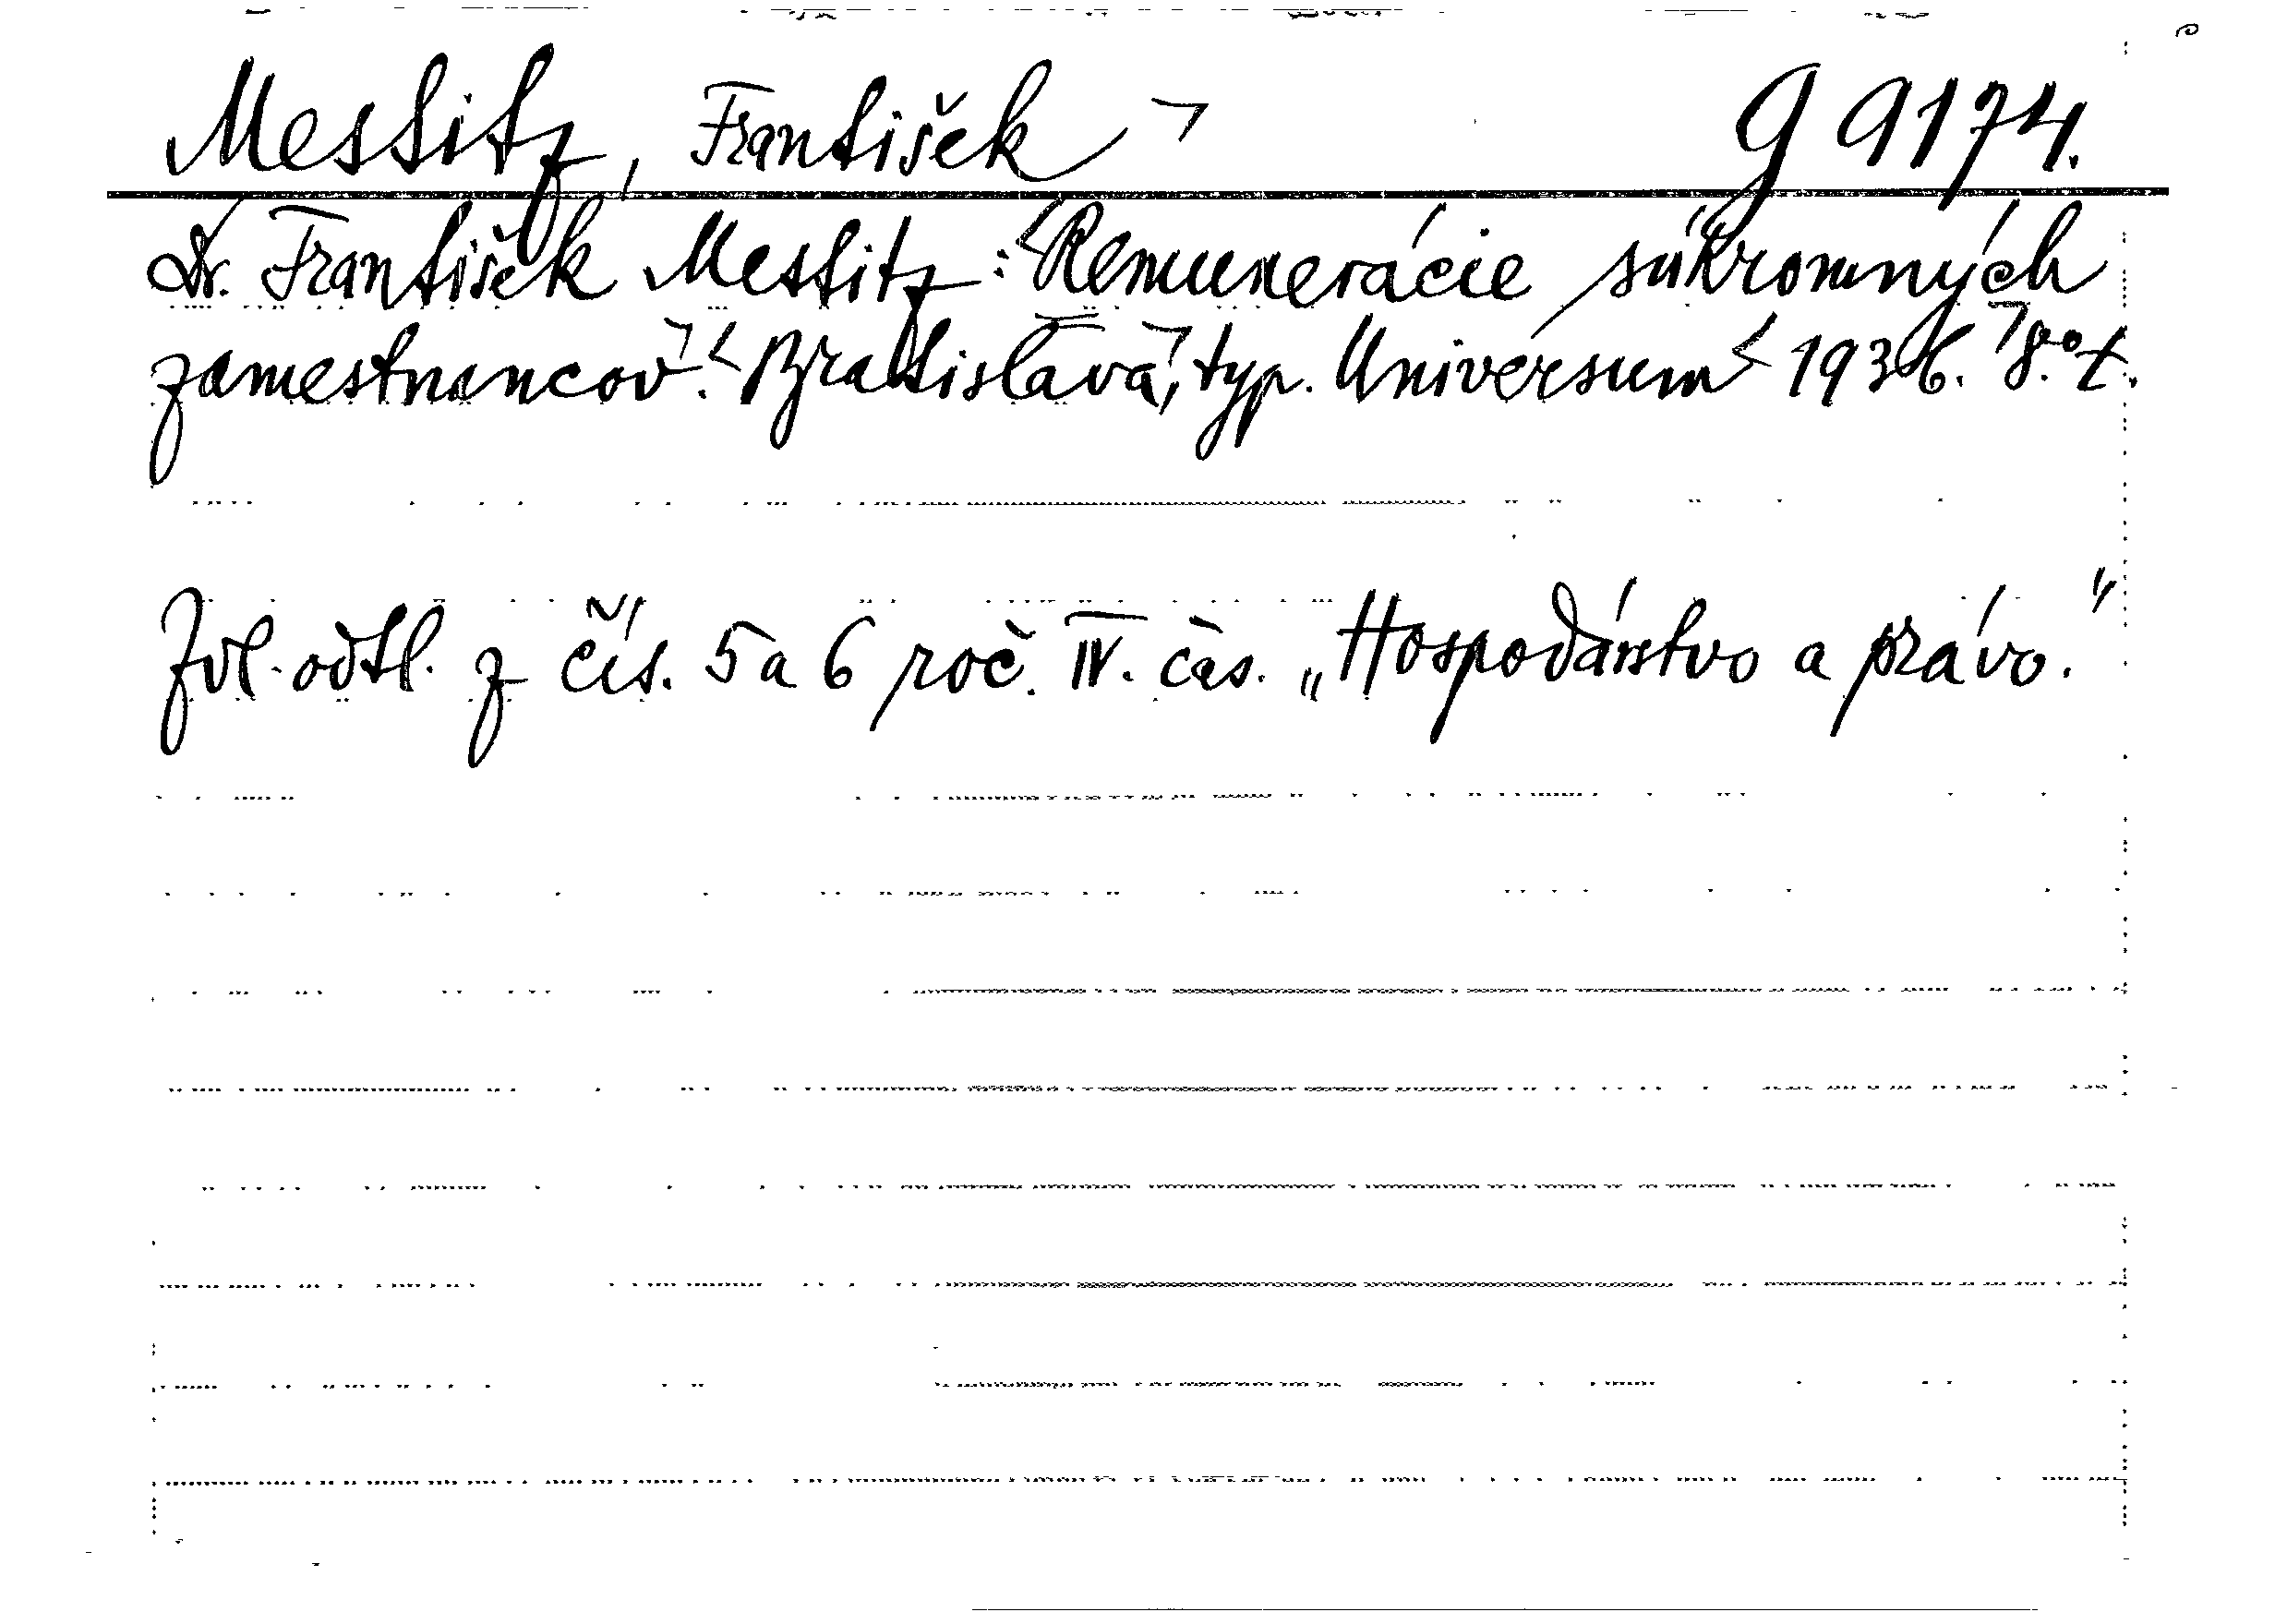 Messitz, František ¬ G 9174.
Dr. František Messitz: <Remunerácie súkromných
zamestnancov¬.< Bratislava¬, typ. Universum< 1936. ¬8.° t.
Zvl. odtl. z čís. 5 a 6 roč. IV. čas. „Hospodárstvo a právo."